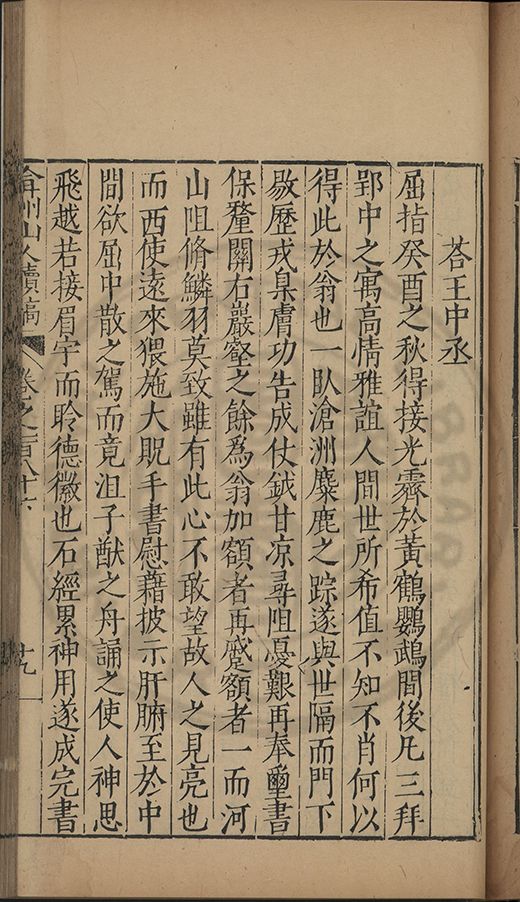 荅王中丞
屈指癸酉之秋得接光霽於黃鶴鸚鵡間後凡三拜
郢中之寓高情雅誼人間世所希值不知不肖何以
得此於翁也一臥滄洲麋鹿之踪遂與世隔而門下
敭歷戎臬膚功告成仗鉞甘凉尋阻憂艱再奉璽書
保釐關右巖壑之餘爲翁加額者再蹙額者一而河
山阻脩鱗羽莫致雖有此心不敢望故人之見亮也
而西使遠來猥施大貺手書慰藉披示肝腑至於中
間欲屈中散之駕而竟沮子猷之舟誦之使人神思
飛越若接眉宇而聆德徽也石經累神用遂成完書
弇州山人續稿 卷之一百八十六 廿九